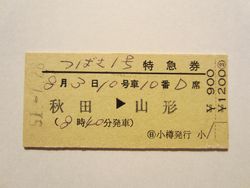 つばさ1号 特急券
8月3日10号車10番D席
秋田 ▶ 山形
(8時40分発車)
㊐小樽発行 小
¥900
¥1200